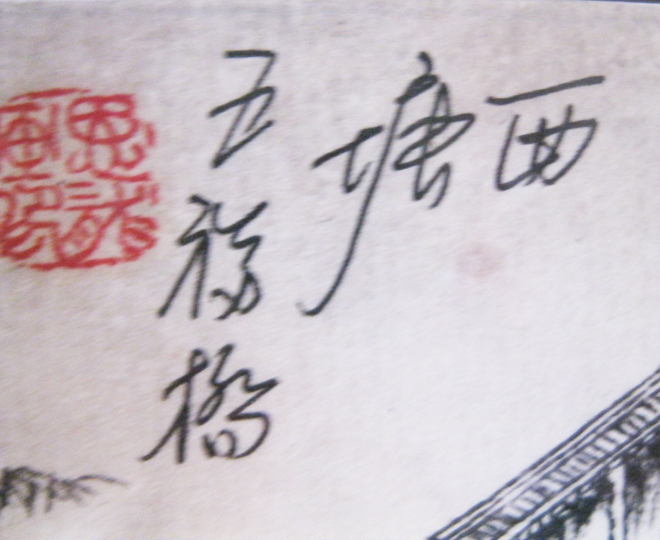 西塘
五福橋